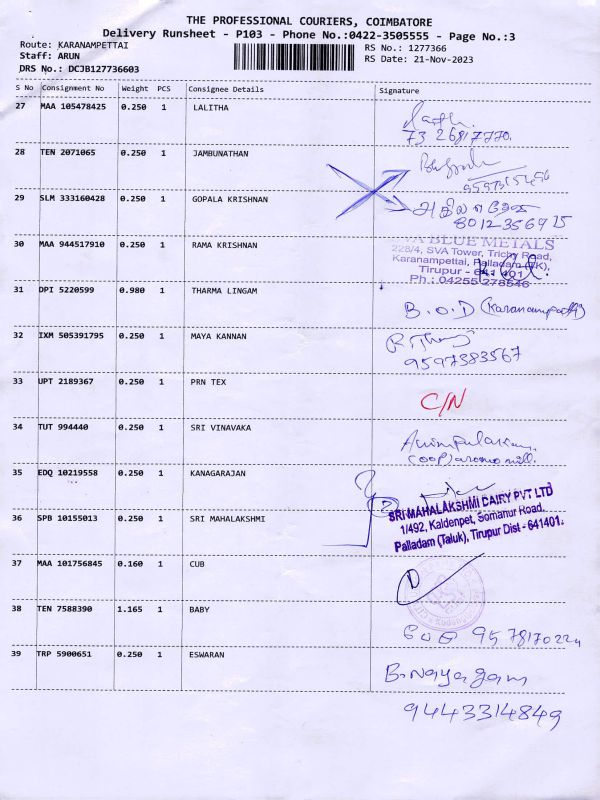 THE PROFESSIONAL COURIERS, COIMBATORE
Delivery Runsheet - P103 - Phone No.:0422-3505555 - Page No.:3
Route: KARANAMPETTAI
RS No.: 1277366
Staff: ARUN
RS Date: 21-Nov-2023
DRS No.: DCJB127736603
S No Consignment No Weight PCS Consignee Details Signature
27 MAA 105478425 0.250 1 LALITHA
28 TEN 2071065 0.250 1 JAMBUNATHAN
29 SLM 333160428 0.250 1 GOPALA KRISHNAN
8012356915
30 MAA 944517910 0.250 1 RAMA KRISHNAN
SVA BLUE METALS
228/4, SVA Tower, Trichy Road,
Karanampettai, Palladam (TK),
Tirupur - 641 401
Ph : 04255 278546
31 DPI 5220599 0.980 1 THARMA LINGAM
B.O.D
32 IXM 505391795 0.250 1 MAYA KANNAN
9597383567
33 UPT 2189367 0.250 1 PRN TEX
C/N
34 TUT 994440 0.250 1 SRI VINAVAKA
35 EDQ 10219558 0.250 1 KANAGARAJAN
36 SPB 10155013 0.250 1 SRI MAHALAKSHMI
SRI MAHALAKSHMI DAIRY PVT LTD
1/492, Kaldenpet, Somanur Road,
Palladam (Taluk), Tirupur Dist - 641401.
37 MAA 101756845 0.160 1 CUB
38 TEN 7588390 1.165 1 BABY
39 TRP 5900651 0.250 1 ESWARAN
B.Nayagam
9443314849